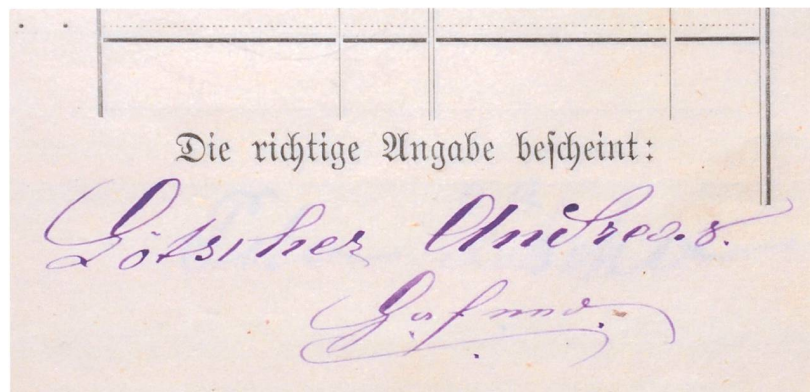 Die richtige Angabe bescheint:
Götscher Andreas.